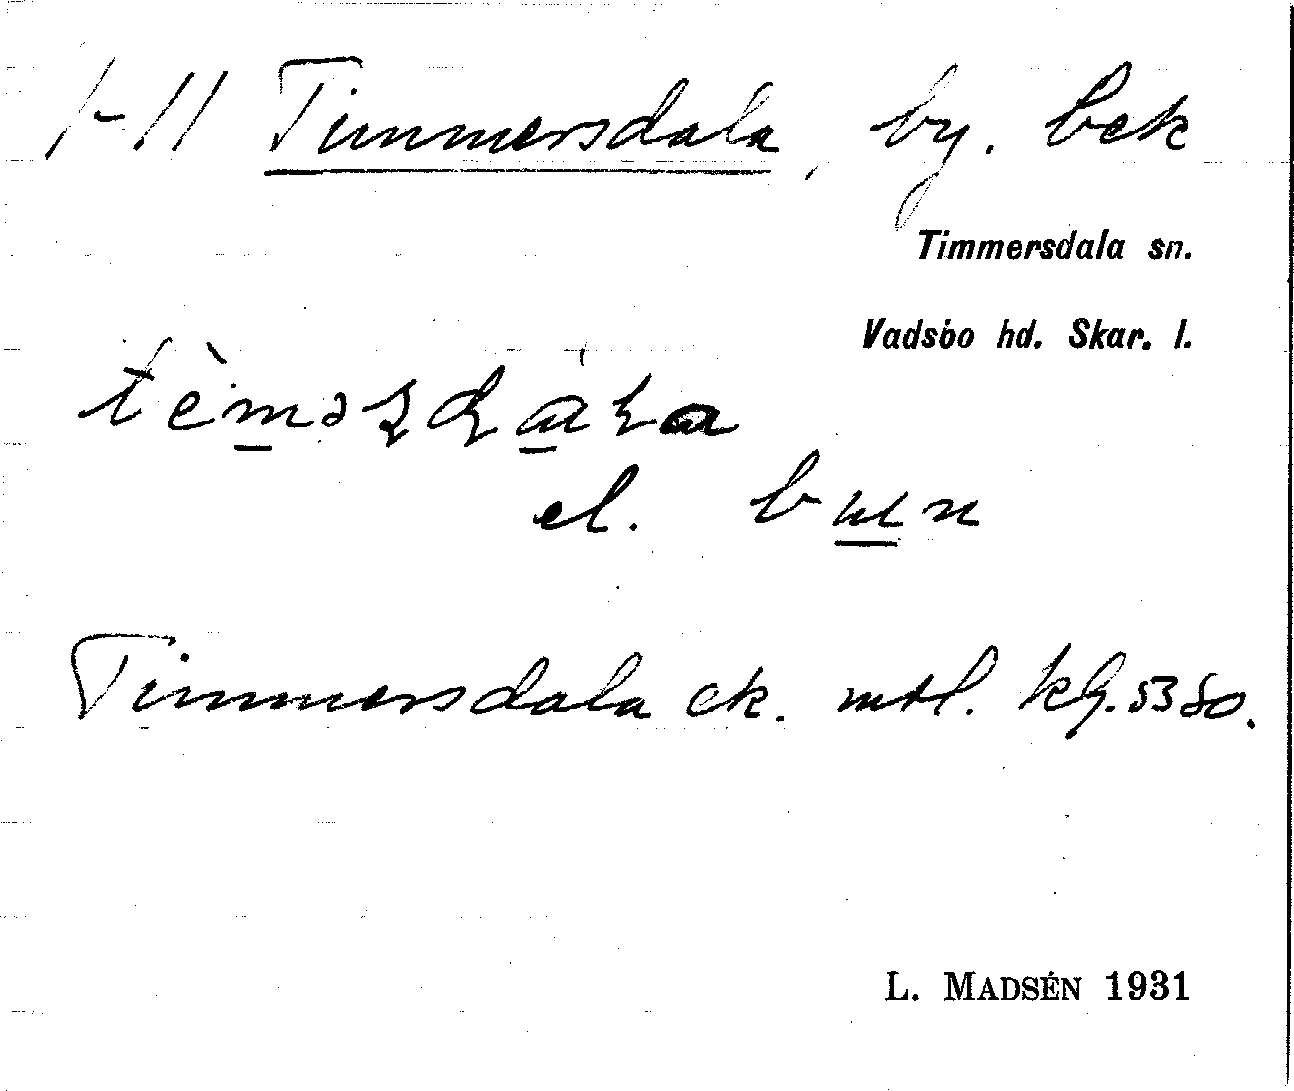 1-11 Timmersdala, by. bek
Timmersdala sn.
Vadsbo hd. Skar. l.
el.
Timmersdala ek. mtl. kG. 53 So.
L. MADSÉN 1931